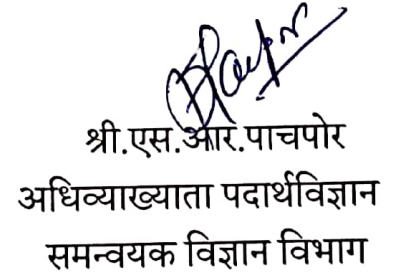 श्री.एस.आर.पाचपोर
अधिव्याख्याता पदार्थविज्ञान
समन्वयक विज्ञान विभाग